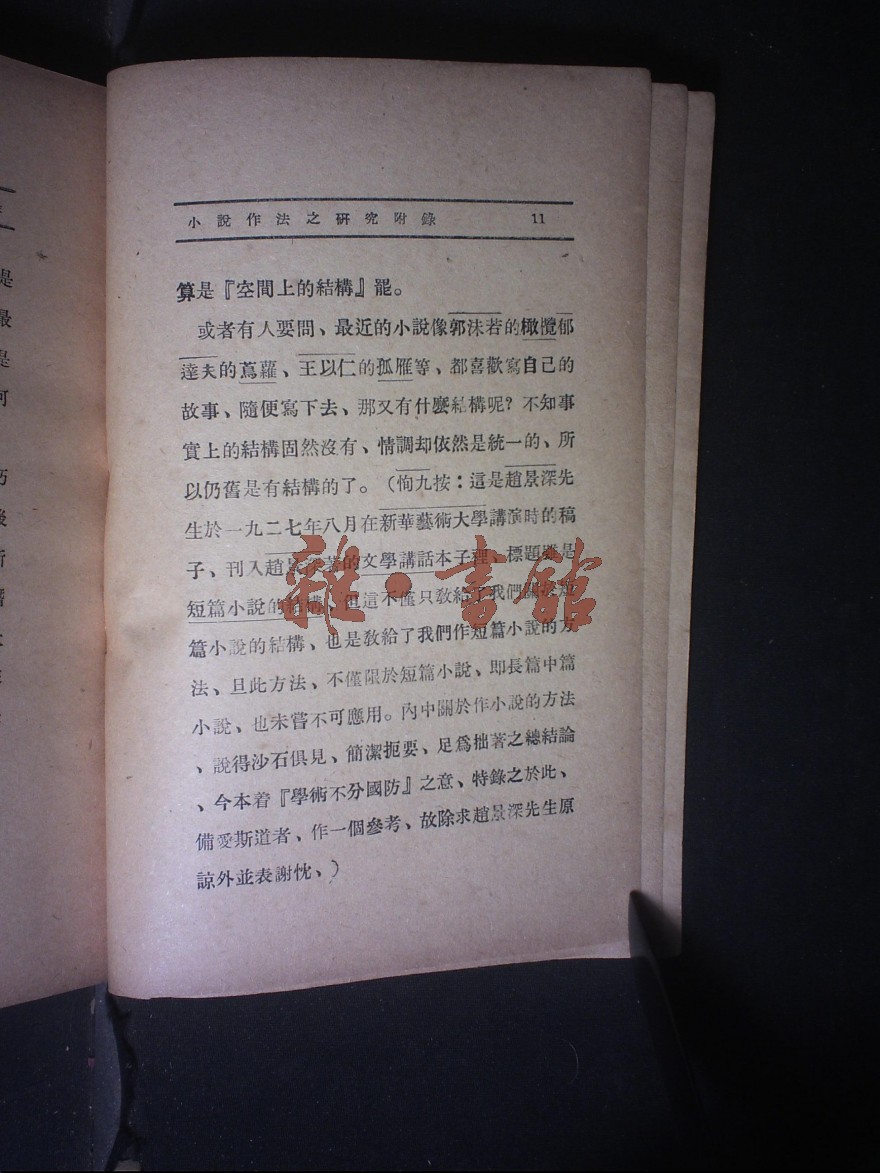 小說作法之研究附錄 11
算是『空間上的結構』罷。
或者有人要問、最近的小說像郭沫若的橄欖郁
達夫的蔦蘿、王以仁的孤雁等、都喜歡寫自己的
故事、隨便寫下去、那又有什麼結構呢?不知事
實上的結構固然沒有、情調却依然是統一的、所
以仍舊是有結構的了。(恂九按:這是趙景深先
生於一九二七年八月在新華藝術大學講演時的稿
子、刊入趙景深著的文學講話本子裡、標題雖是
短篇小說的結構、但這不僅只敎給了我們關於短
篇小說的結構、也是敎給了我們作短篇小說的方
法、旦此方法、不僅限於短篇小說、即長篇中篇
小說、也未嘗不可應用。內中關於作小說的方法
、說得沙石俱見、簡潔扼要、足爲拙著之總結論
、今本着『學術不分國防』之意、特錄之於此、
備愛斯道者、作一個參考、故除求趙景深先生原
諒外並表謝忱、)
雜·書館
是
最
是
何
後